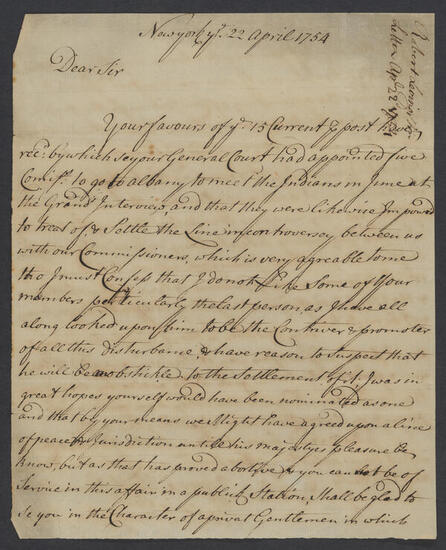 New york ye. 22 April 1754
Dear Sir
Your favours of ye. 15 Current ye post have
recd. by which se your General Court had appointed five
Comisrs. to go to albany to meet the Indians in June at
the Grand Interview, and that they were likewise Impowred
to treat of & Settle the Line in controversey between us
with our Commissioners, which is very agreable to me
tho I must Confess that I do not like Some of Your
members particularly the last person, as I have all
along looked upon him to be the Contriver & promoter
of all this disturbance, & have reason to suspect that
he will be an obstickle to the Settlement of it. I was in
great hopes yourself would have been nominated as one
and that by your means we Might have agreed upon a line
of peace or Jurisdiction untill his majestyes pleasure be
know, but as that has proved abortive & you can not be of
Service in this affair in a publick Station, Shall be glad to
Se you in the Character of a privat Gentlemen in which
Robert
letter Apr 22 1754